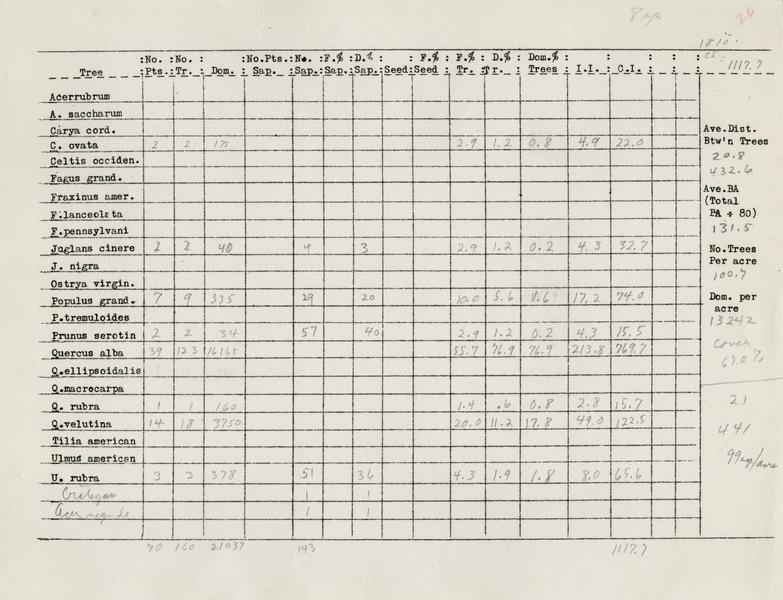 8 sp
24
1810.
:No. :No. : :No.Pts.:No. :F.% :D.% : : F.% :F.% :D.% : Dom.% : : : :
Tree :Pts.:Tr. : Dom. : Sap. :Sap.:Sap.:Sap.:Seed:Seed :Tr. :Tr. : Trees : I.I. : C.I. : : :
1117.7
Acerrubrum
A. saccharum
Carya cord.
C. ovata 2 2 175 2.9 1.2 0.8 4.9 22.0
Celtis occiden.
Fagus grand.
Fraxinus amer.
F.lanceolata
F.pennsylvani
Juglans cinere 2 2 40 4 3 2.9 1.2 0.2 4.3 32.7
J. nigra
Ostrya virgin.
Populus grand. 7 9 335 29 20 10.0 5.6 1.6 17.2 74.0
P.tremuloides
Prunus serotin 2 2 34 57 40 2.9 1.2 0.2 4.3 15.5
Quercus alba 39 123 16165 55.7 76.9 76.9 213.8 769.7
Q.ellipsoidalis
Q.macrocarpa
Q. rubra 1 1 160 1.4 .6 0.8 2.8 15.7
Q.velutina 14 18 3750 20.0 11.2 17.8 49.0 122.5
Tilia american
Ulmus american
U. rubra 3 3 378 51 36 4.3 1.9 1.8 8.0 65.6
Crataegus 1 1
Acer negundo 1 1
70 160 21037 143 1117.7
Ave.Dist.
Btw'n Trees
20.8
432.6
Ave.BA
(Total
BA ÷ 80)
131.5
No.Trees
Per acre
100.7
Dom. per
acre
13242
cover
67.0%
21
441
99 sq/acre